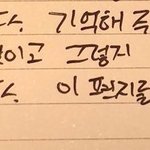 다. 기억해 주
것이고 그렇지
다. 이 편지를